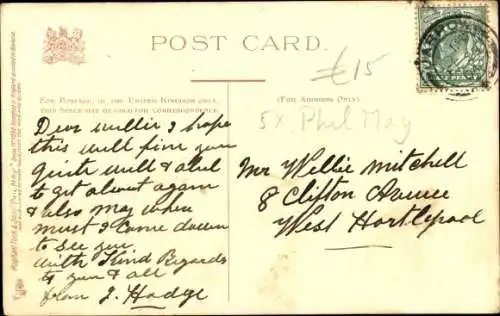 POST CARD.
£15
FOR POSTAGE, IN THE UNITED KINGDOM ONLY, THIS SPACE MAY BE USED FOR CORRESPONDENCE.
(FOR ADDRESS ONLY.)
5x Phil May
Dear Willie I hope
this will find you
quite well & abel
to get about again
& also May when
must I come down
to see you.
with Kind Regards
to you & all
from J. Hodge
Mr Willie Mitchell
8 Clifton Avenue
West Hartlepool